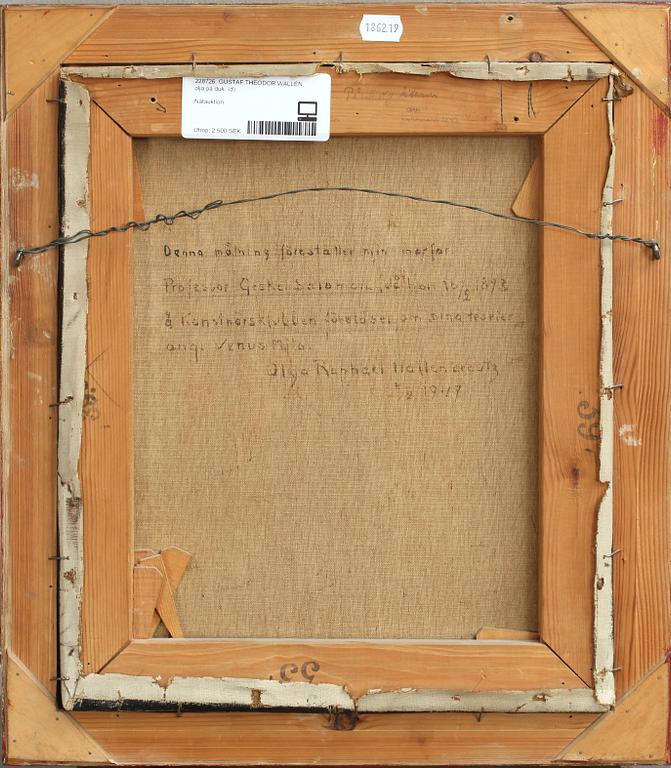 186219
228726. GUSTAF THEODOR WALLÉN,
olja på duk. (d)
Nätauktion
Utrop: 2 500 SEK
Denna målning föreställer min morfar
Professor Geskel Saloman, då han 16/2 1893
å Konstnärsklubben föreläser om sina teorier
ang. Venus Milo.
Olga Raphael Hallencreutz
1917
55